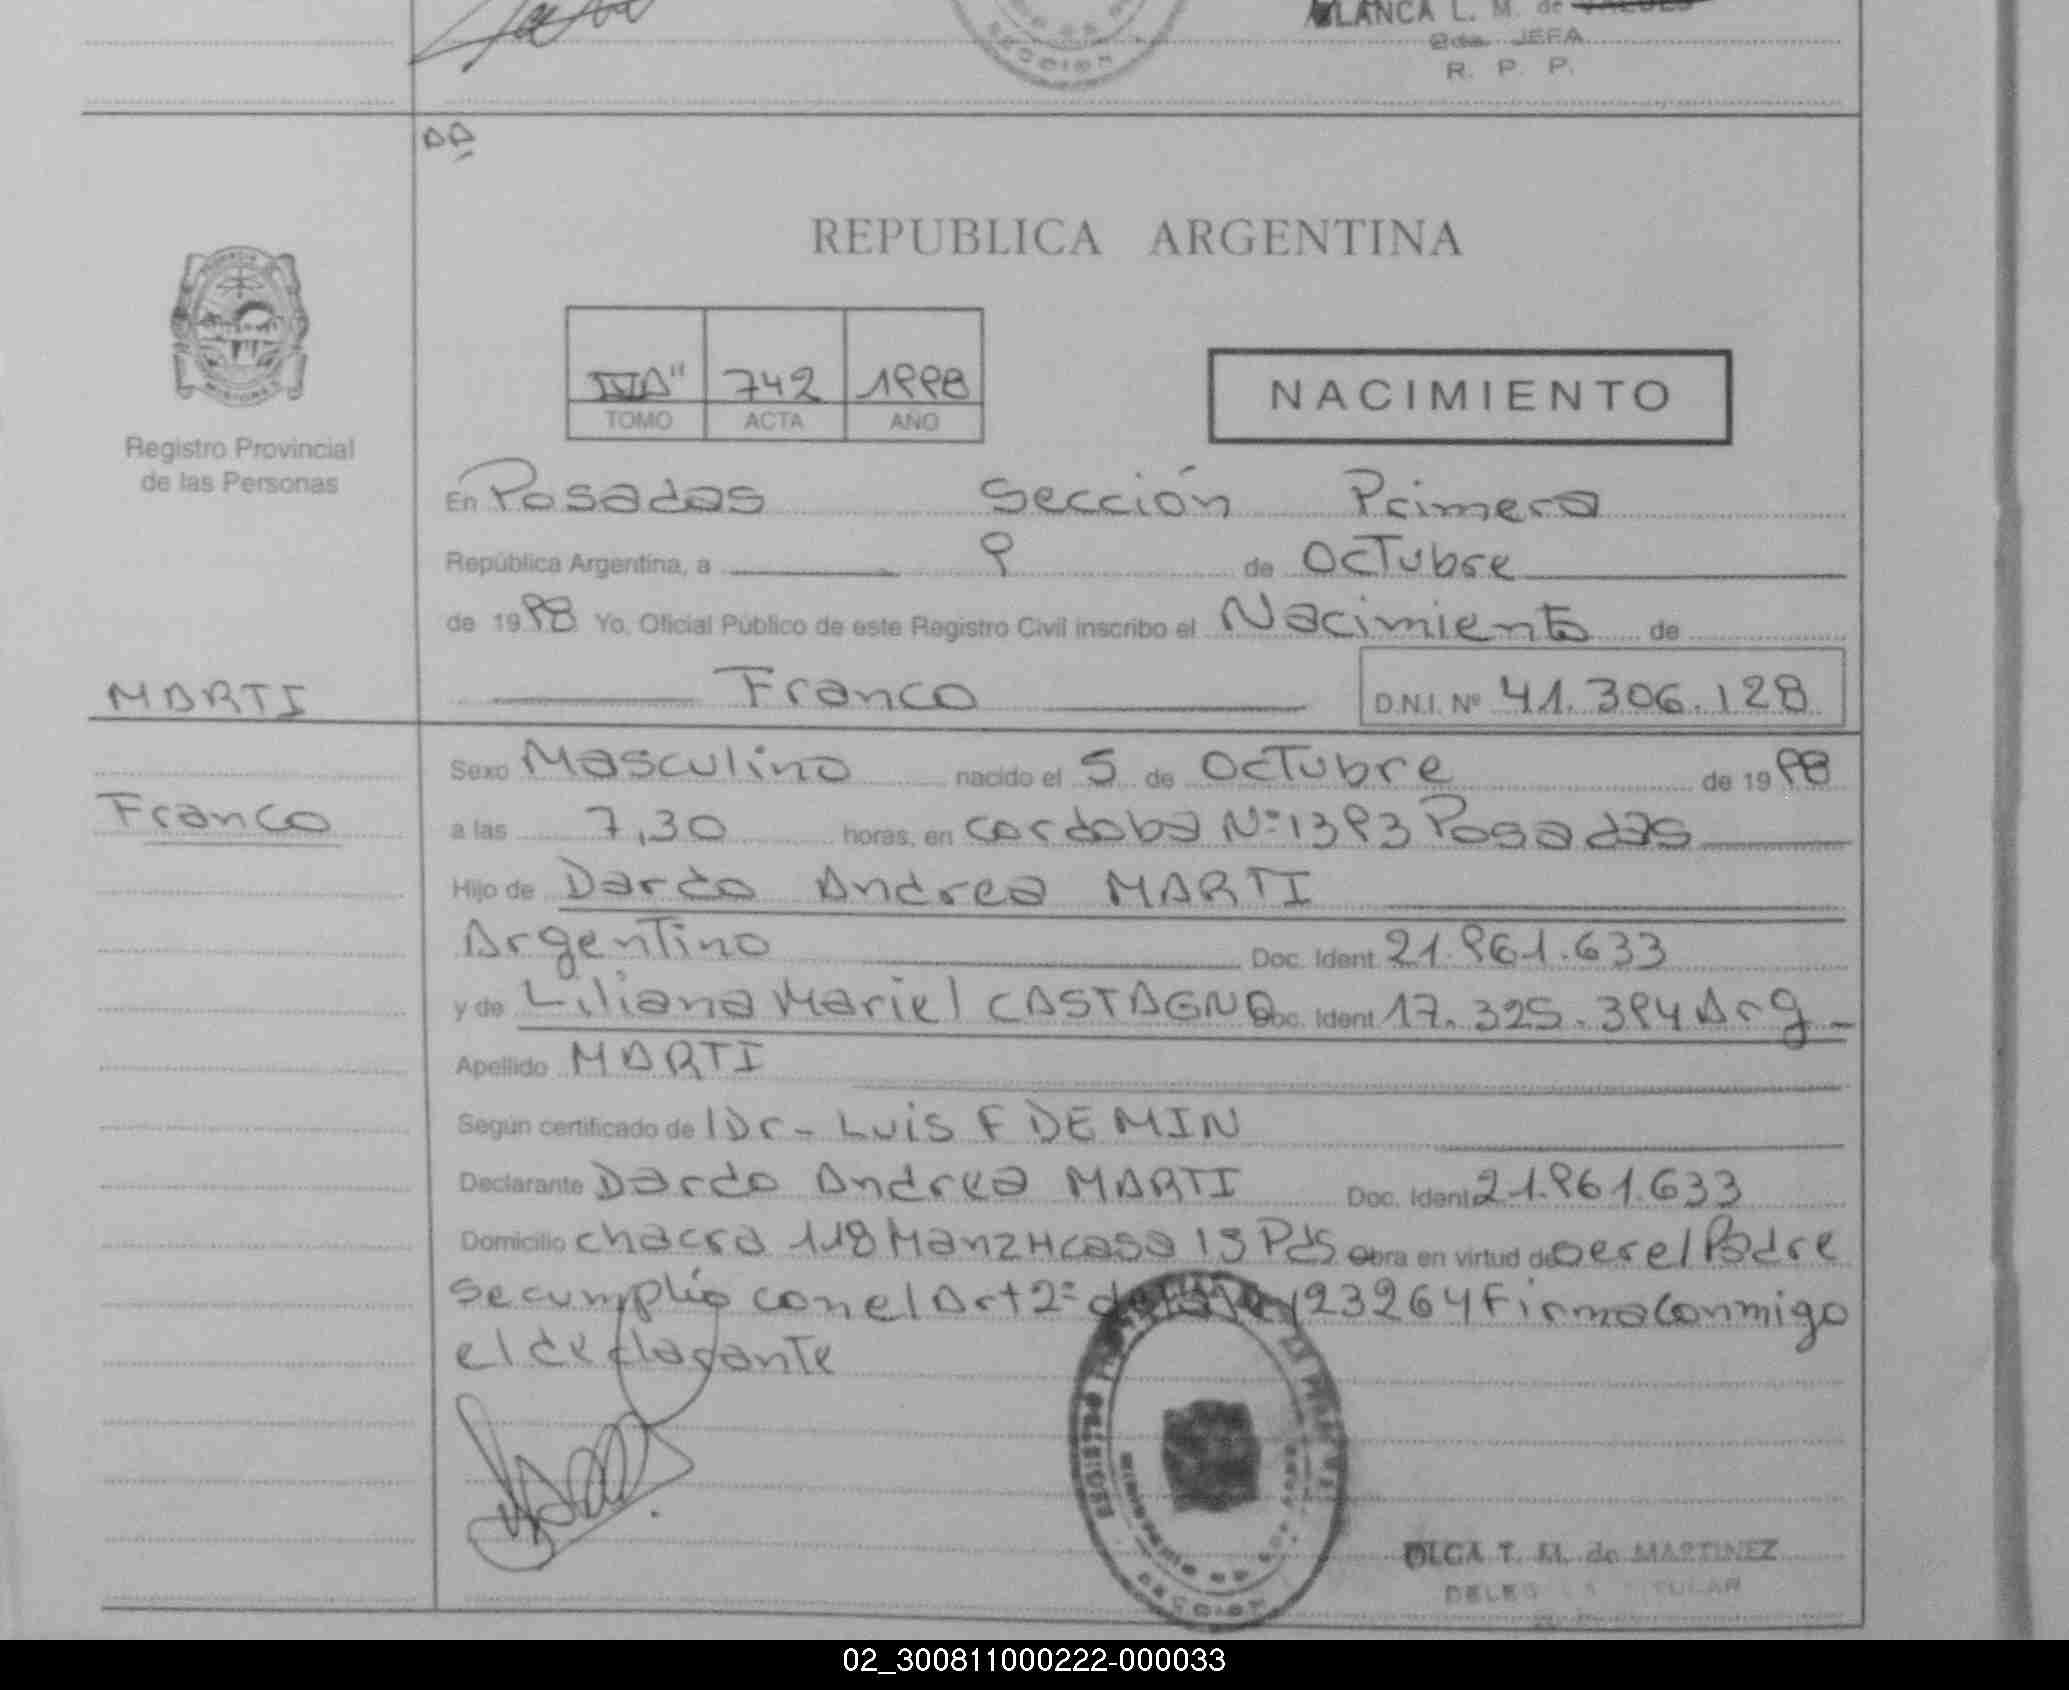 BLANCA L. M. de
JEFA
R. P. P.
SECCION
REPUBLICA ARGENTINA
742 1998
TOMO ACTA AÑO
NACIMIENTO
Registro Provincial
de las Personas
En Posadas Sección Primera
República Argentina, a 9 de Octubre
de 1998 Yo, Oficial Público de este Registro Civil inscribo el Nacimiento de
MARTI
Franco D.N.I. Nº 41.306.128
Sexo Masculino nacido el 5 de Octubre de 1998
Franco
a las 7,30 horas, en cordoba Nº 1393 Posadas
Hijo de Dardo Andrea MARTI
Argentino Doc. Ident. 21.961.633
y de Liliana Mariel CASTAGNO Doc. Ident. 17.325.394 Arg
Apellido MARTI
Según certificado de Dr- Luis F DEMIN
Declarante Dardo Andrea MARTI Doc. Ident 21.961.633
Domicilio chacra 118 Manz H casa 15 Pds obra en virtud de ser el Padre
se cumplio con el Art 2º 23264 Firma Conmigo
el declarante
OLGA T. M. de MARTINEZ
TITULAR
02_300811000222-000033